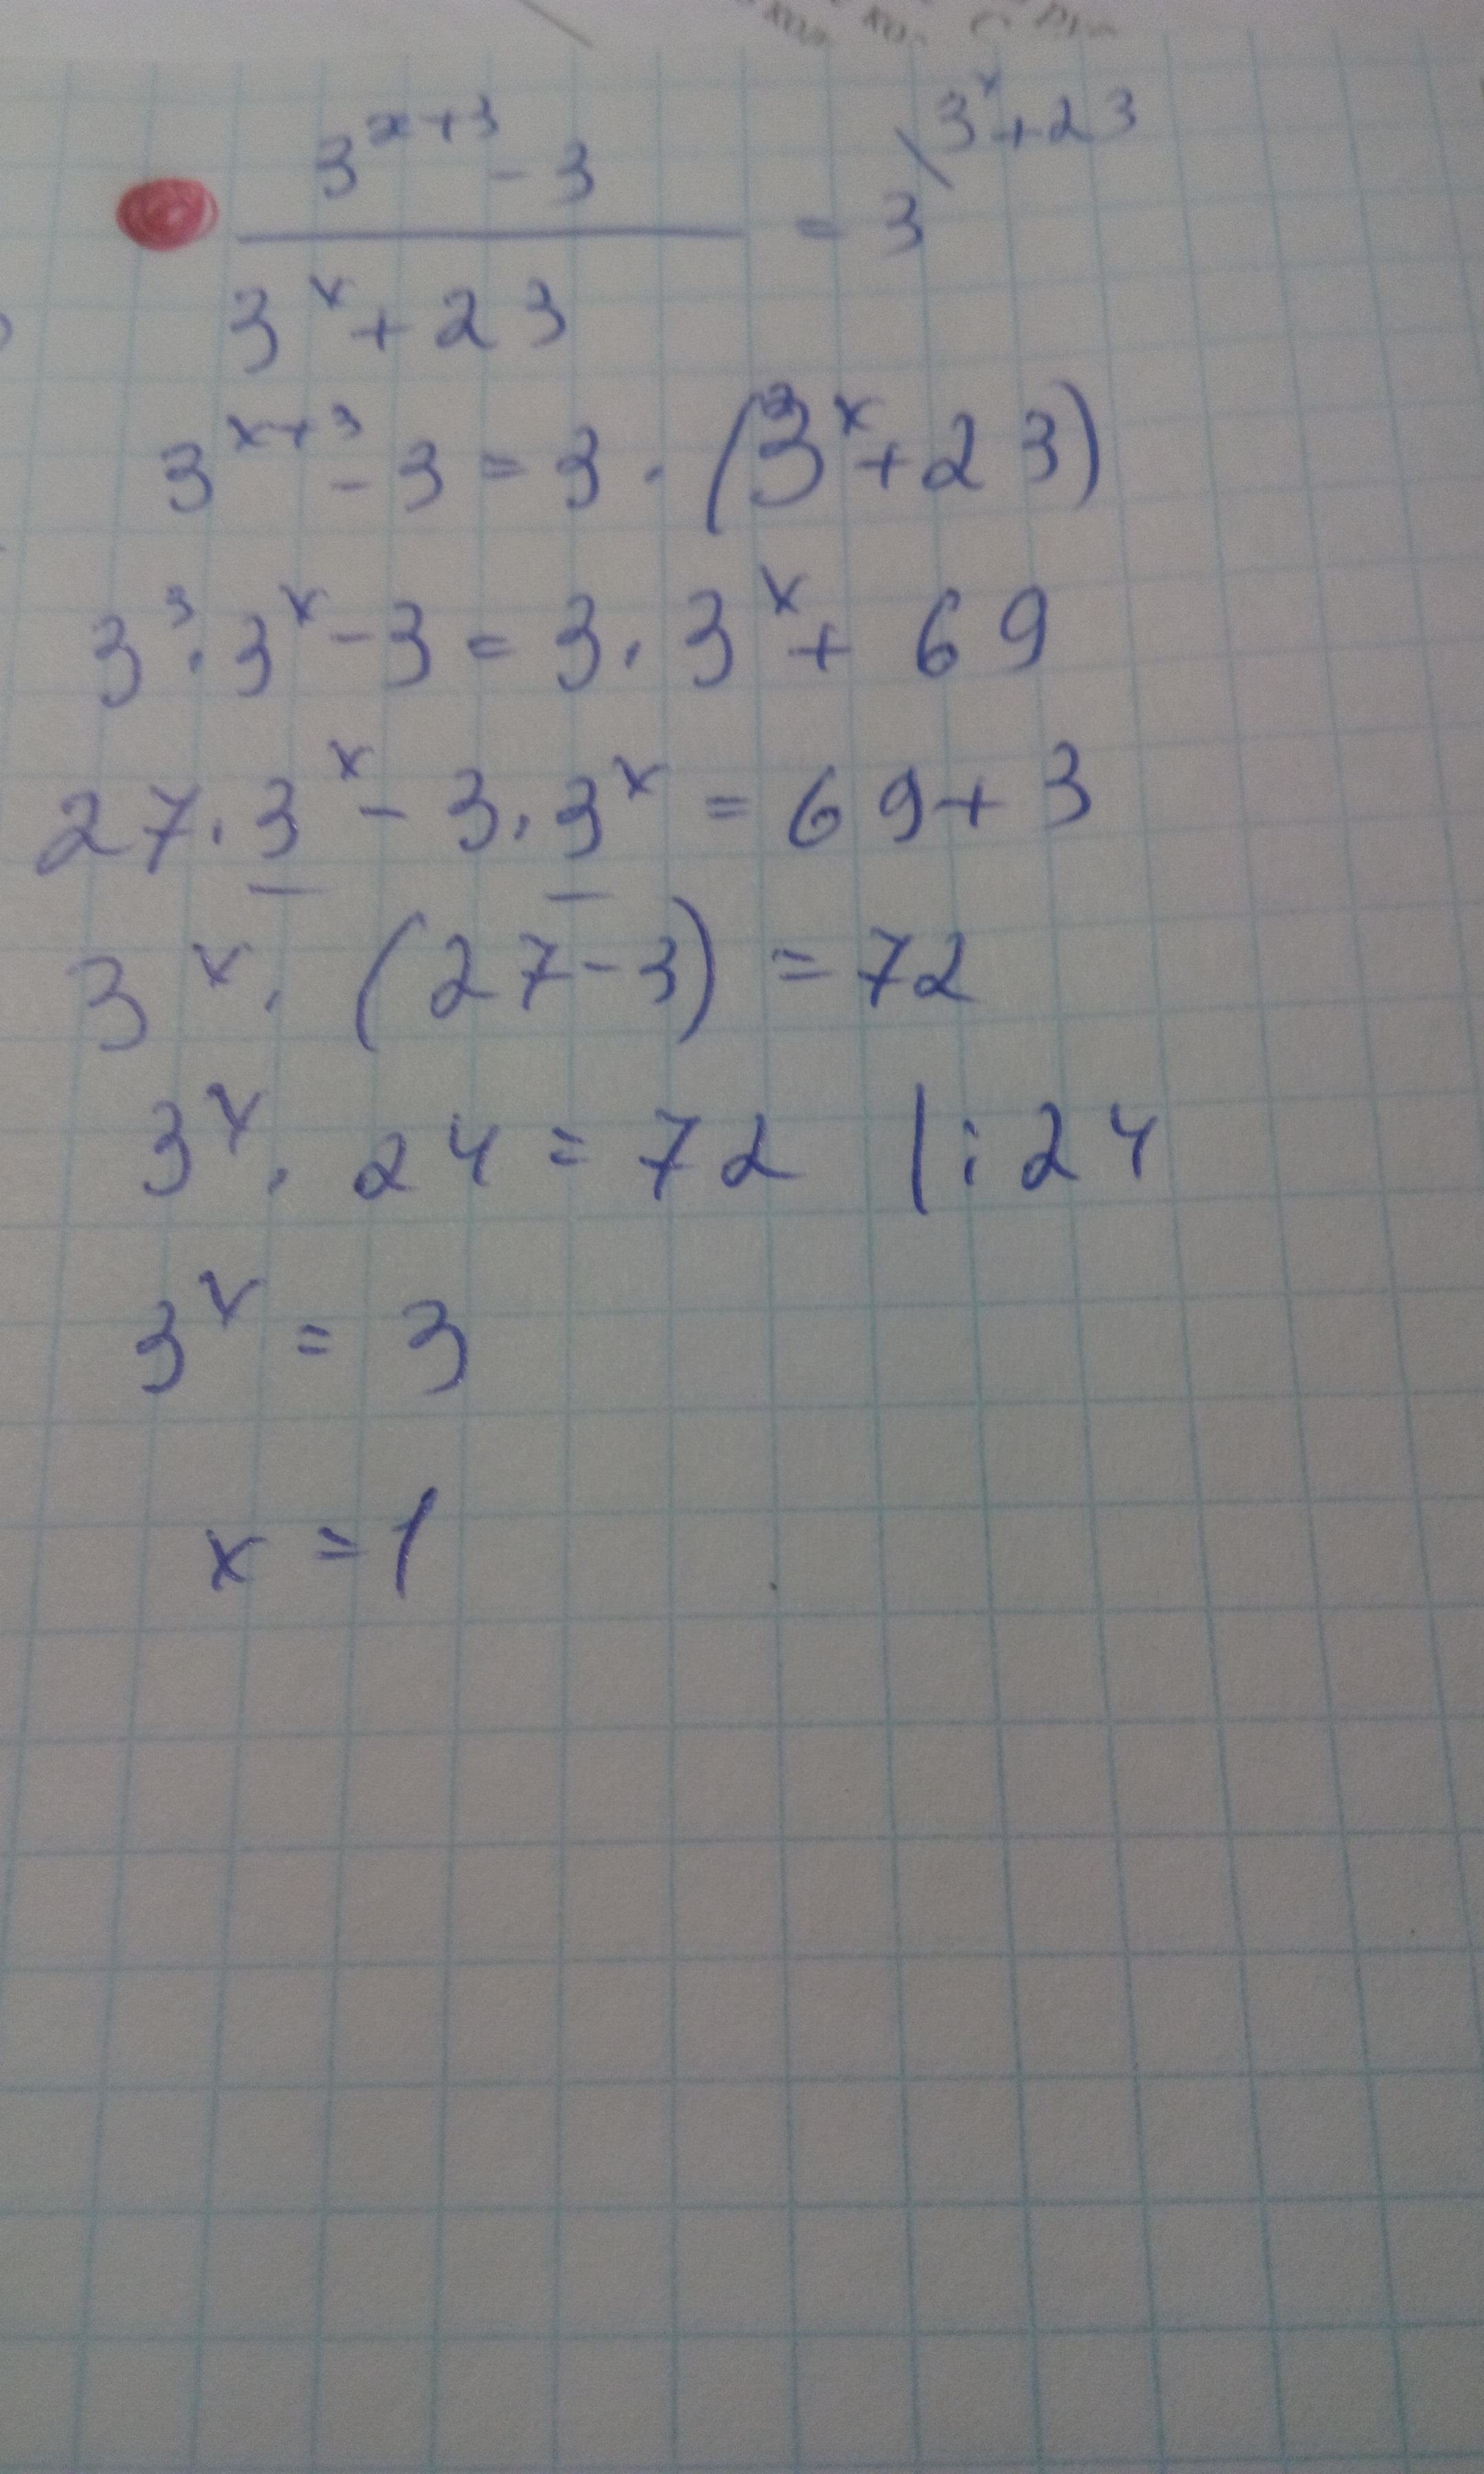 3^{x+3} - 3 / 3^x + 23 = 3 \ 3^x + 23
3^{x+3} - 3 = 3 · (3^x + 23)
3^3 · 3^x - 3 = 3 · 3^x + 69
27 · 3^x - 3 · 3^x = 69 + 3
3^x · (27 - 3) = 72
3^x · 24 = 72 |: 24
3^x = 3
x = 1